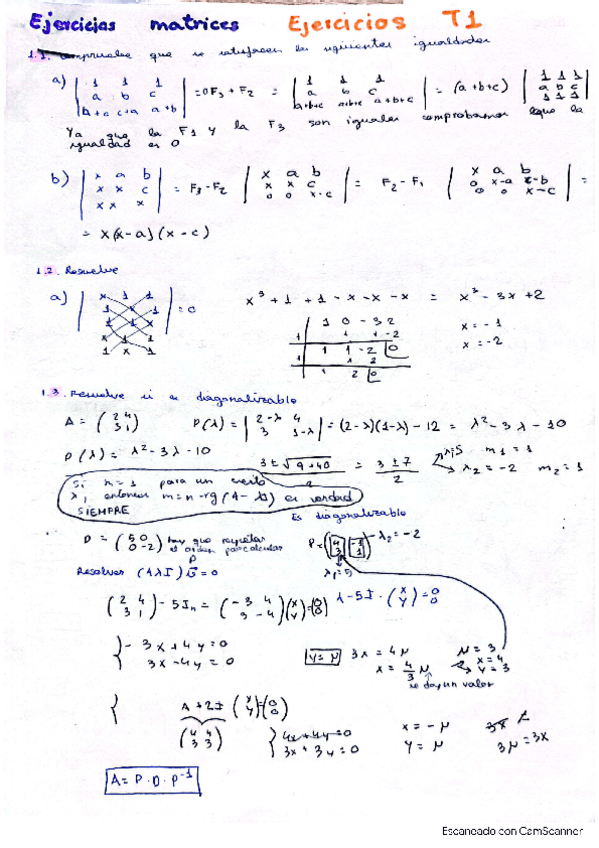 Ejercicios matrices Ejercicios T1
1.1. Comprueba que se satisfacen las siguientes igualdades
a) | 1 1 1 | a b c | b+c c+a a+b | = 0 F3 + F2 = | 1 1 1 | a b c | a+b+c a+b+c a+b+c | = (a+b+c) | 1 1 1 | a b c | 1 1 1 |
Ya que la F1 y la F3 son iguales comprobamos que la
igualdad es 0
b) | x a b | x x c | x x x | = F3 - F2 | x a b | x x c | 0 0 x-c | = F2 - F1 | x a b | 0 x-a x-b | 0 0 x-c | =
= x(x-a)(x-c)
1.2. Resuelve
a) | x 1 1 | 1 x 1 | 1 1 x | = 0 x³ + 1 + 1 - x - x - x = x³ - 3x + 2
1 0 -3 2
1 1 1 -2
1 1 -2 0
1 1 2
1 2 0
x = -1
x = -2
1.3. Resuelve si es diagonalizable
A = (2 4 / 3 1) P(λ) = | 2-λ 4 | 3 1-λ | = (2-λ)(1-λ) - 12 = λ² - 3λ - 10
P(λ) = λ² - 3λ - 10 3 ± √(9+40) / 2 = 3 ± 7 / 2 λ1=5 m1 = 1
λ2 = -2 m2 = 1
Si m=1 para un cierto
λ, entonces m = n - rg(A - λI) es verdad
SIEMPRE
Es diagonalizable
D = (5 0 / 0 -2) hay que respetar el orden para calcular P
P = (4 -1 / 3 1) λ2 = -2
λ1 = 5
Resolver (A λ I) v = 0
(2 4 / 3 1) - 5In = (-3 4 / 3 -4)(x / y) = (0 / 0) A - 5I · (x / y) = 0 / 0
{ -3x + 4y = 0
3x - 4y = 0
y = μ 3x = 4μ
x = 4/3 μ
se da un valor
μ = 3
x = 4
y = 3
A + 2I (x / y) = (0 / 0)
(4 4 / 3 3)
{ 4x + 4y = 0
3x + 3y = 0
x = -μ
y = μ
3μ = 3x
A = P · D · P⁻¹
Escaneado con CamScanner